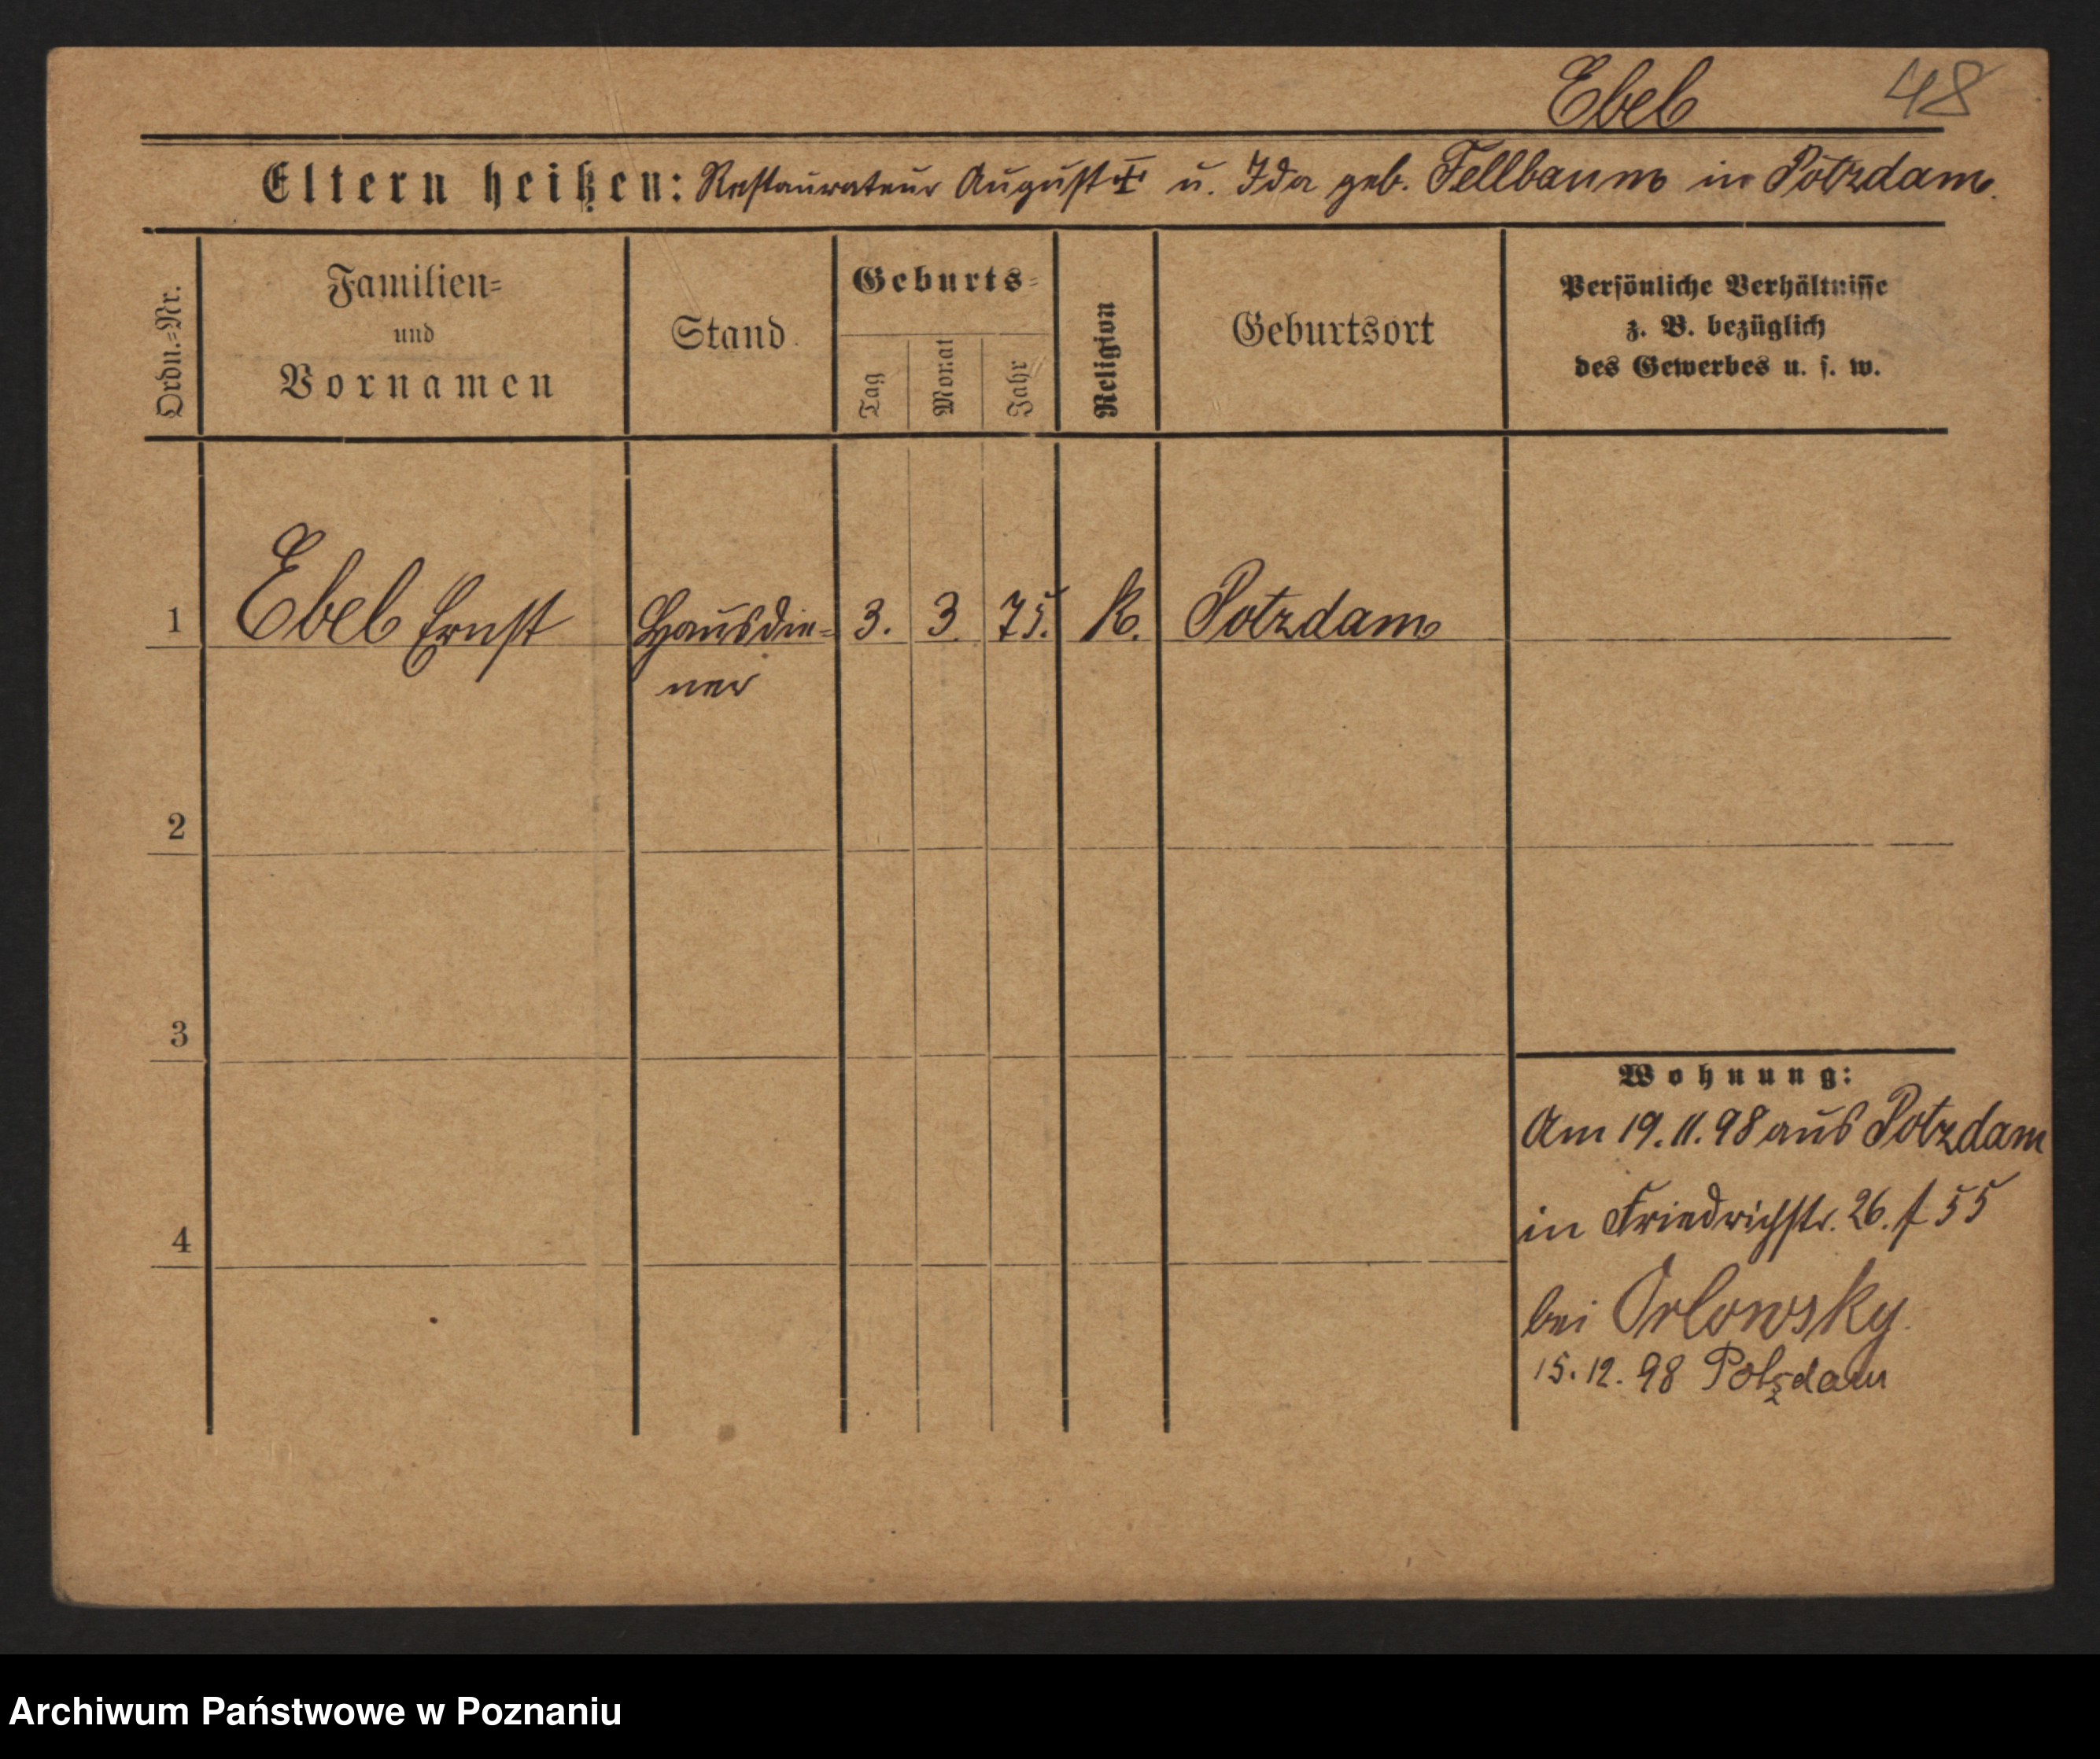 Ebel 48
Eltern heißen: Restaurateur August u. Ida geb. Fellbaum in Potzdam.
Ordn.=Nr.
Familien=
und
Vornamen
Stand
Geburts=
Tag
Monat
Jahr
Religion
Geburtsort
Persönliche Verhältnisse
z. B. bezüglich
des Gewerbes u. s. w.
1 Ebel Ernst Hausdie= 3. 3. 75. K. Potzdam
ner
2
3
4
Wohnung:
Am 19.11.98 aus Potzdam
in Friedrichstr. 26. f 55
bei Orlowsky.
15.12.98 Potzdam
Archiwum Państwowe w Poznaniu